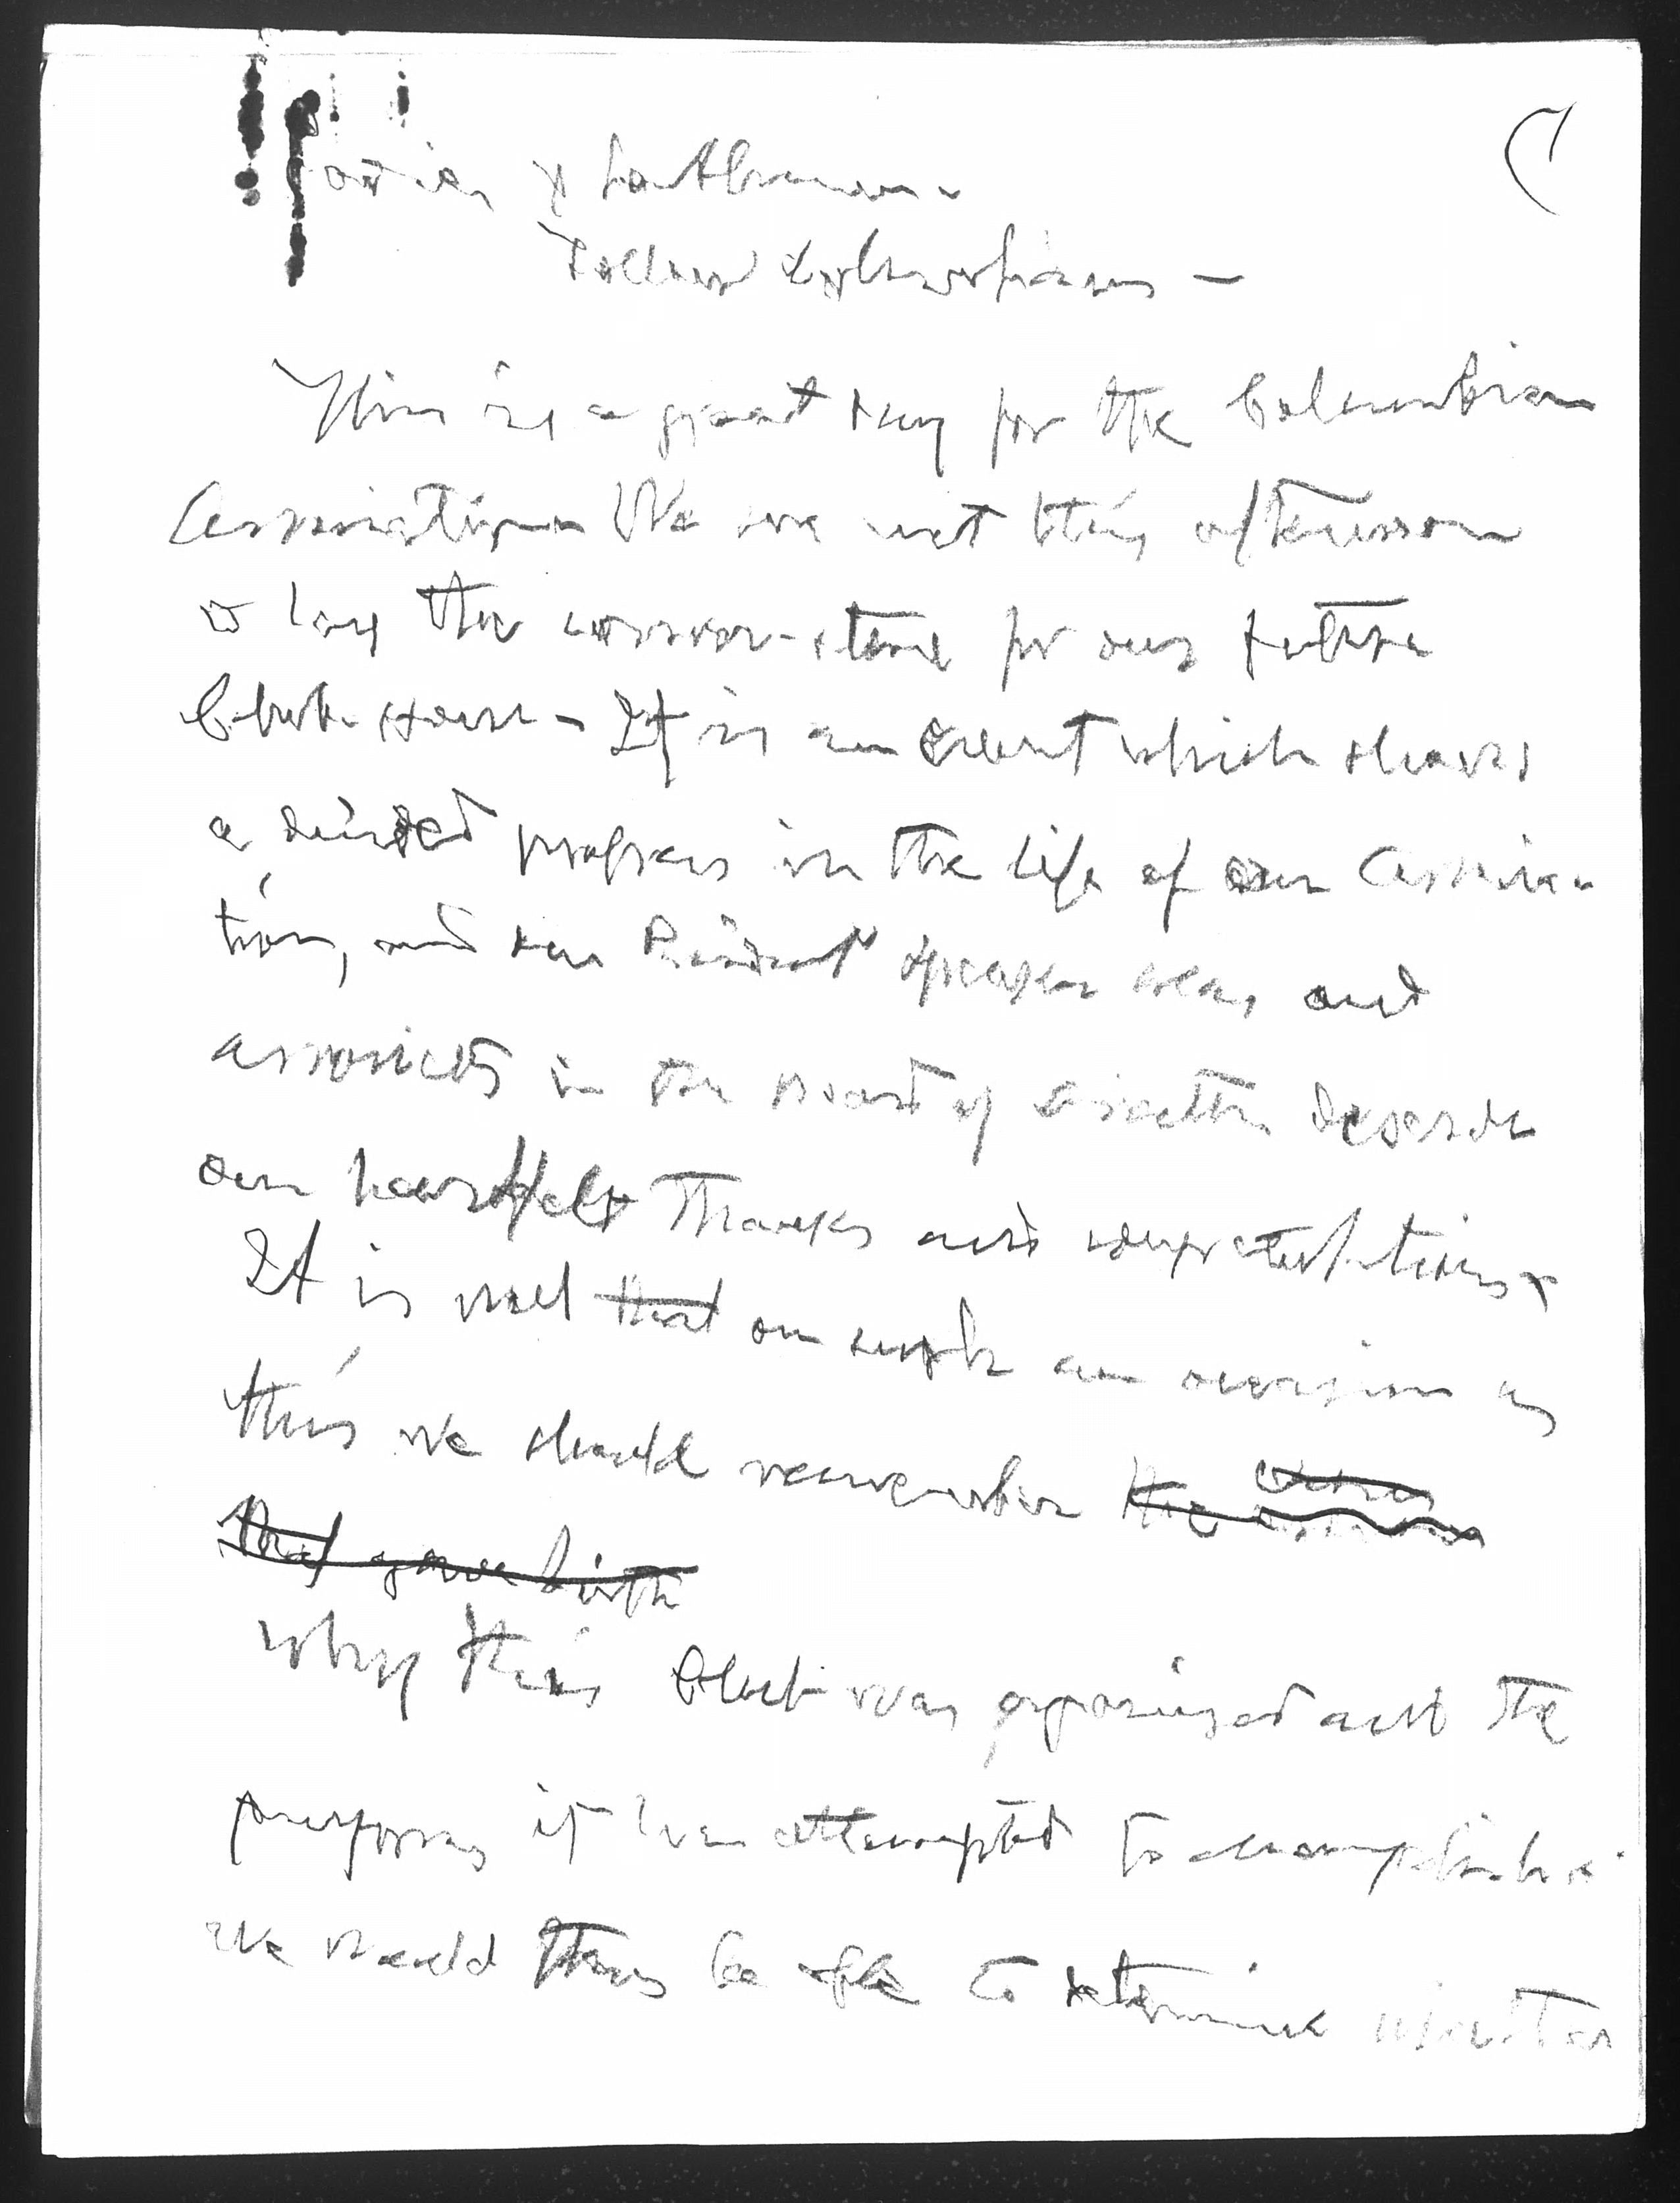 Ladies & Gentlemen -
Fellow Columbians -
This is a great day for the Columbian
Association We are met this afternoon
to lay the corner-stone for our future
Club-House - It is an event which shows
a decided progress in the life of our Associa-
tion, and our President Speaker and
associates in the Board of Directors deserve
our heartfelt thanks and congratulations.
It is well that on such an occasion as
this we should remember the
that gave birth
why this Club was organized and the
purposes it has attempted to accomplish.
We would thus be able to determine whether